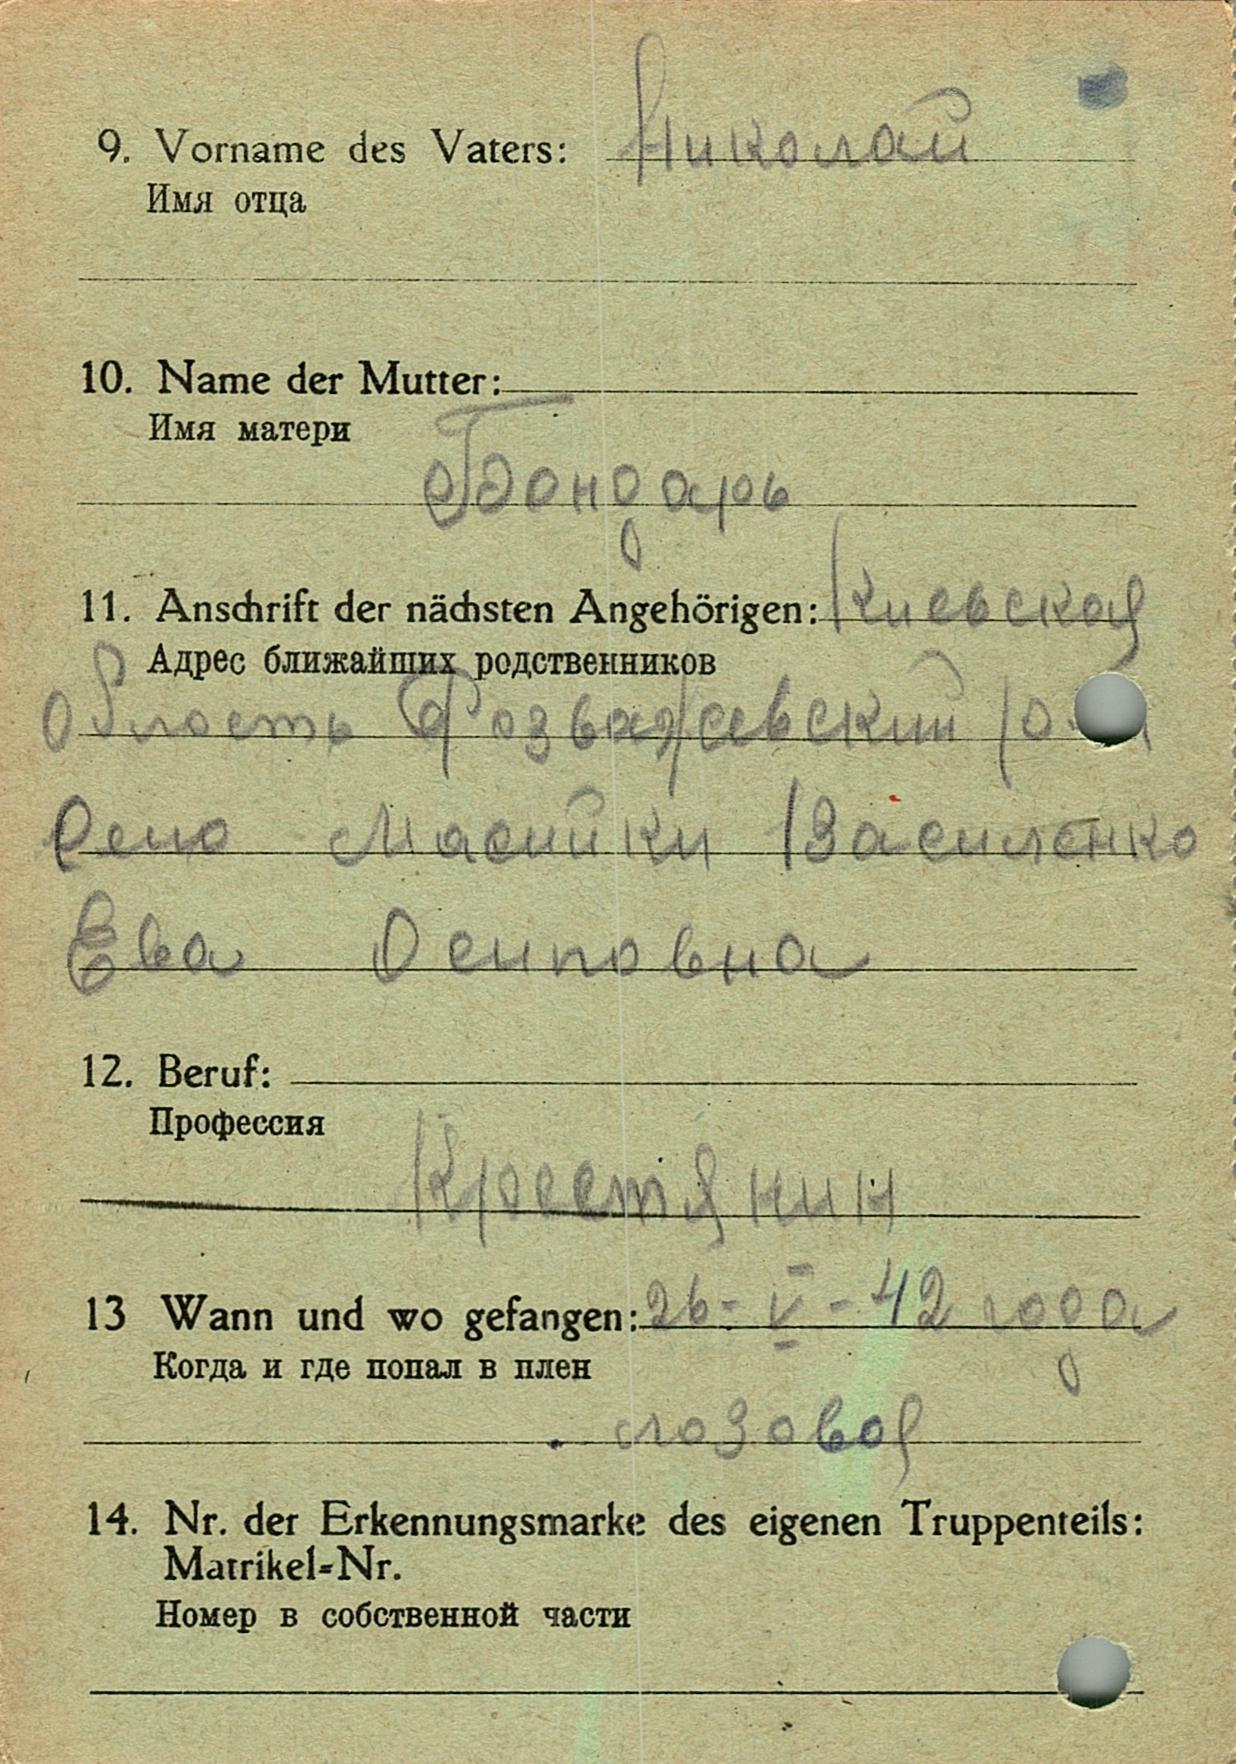 9. Vorname des Vaters: Николай
Имя отца
10. Name der Mutter:
Имя матери
Бондарь
11. Anschrift der nächsten Angehörigen: Киевская
Адрес ближайших родственников
область Розважевский
Село Масийки Василенко
Ева Осиповна
12. Beruf:
Профессия
Крестянин
13 Wann und wo gefangen: 26-V-42 года
Когда и где попал в плен
лозовая
14. Nr. der Erkennungsmarke des eigenen Truppenteils:
Matrikel-Nr.
Номер в собственной части